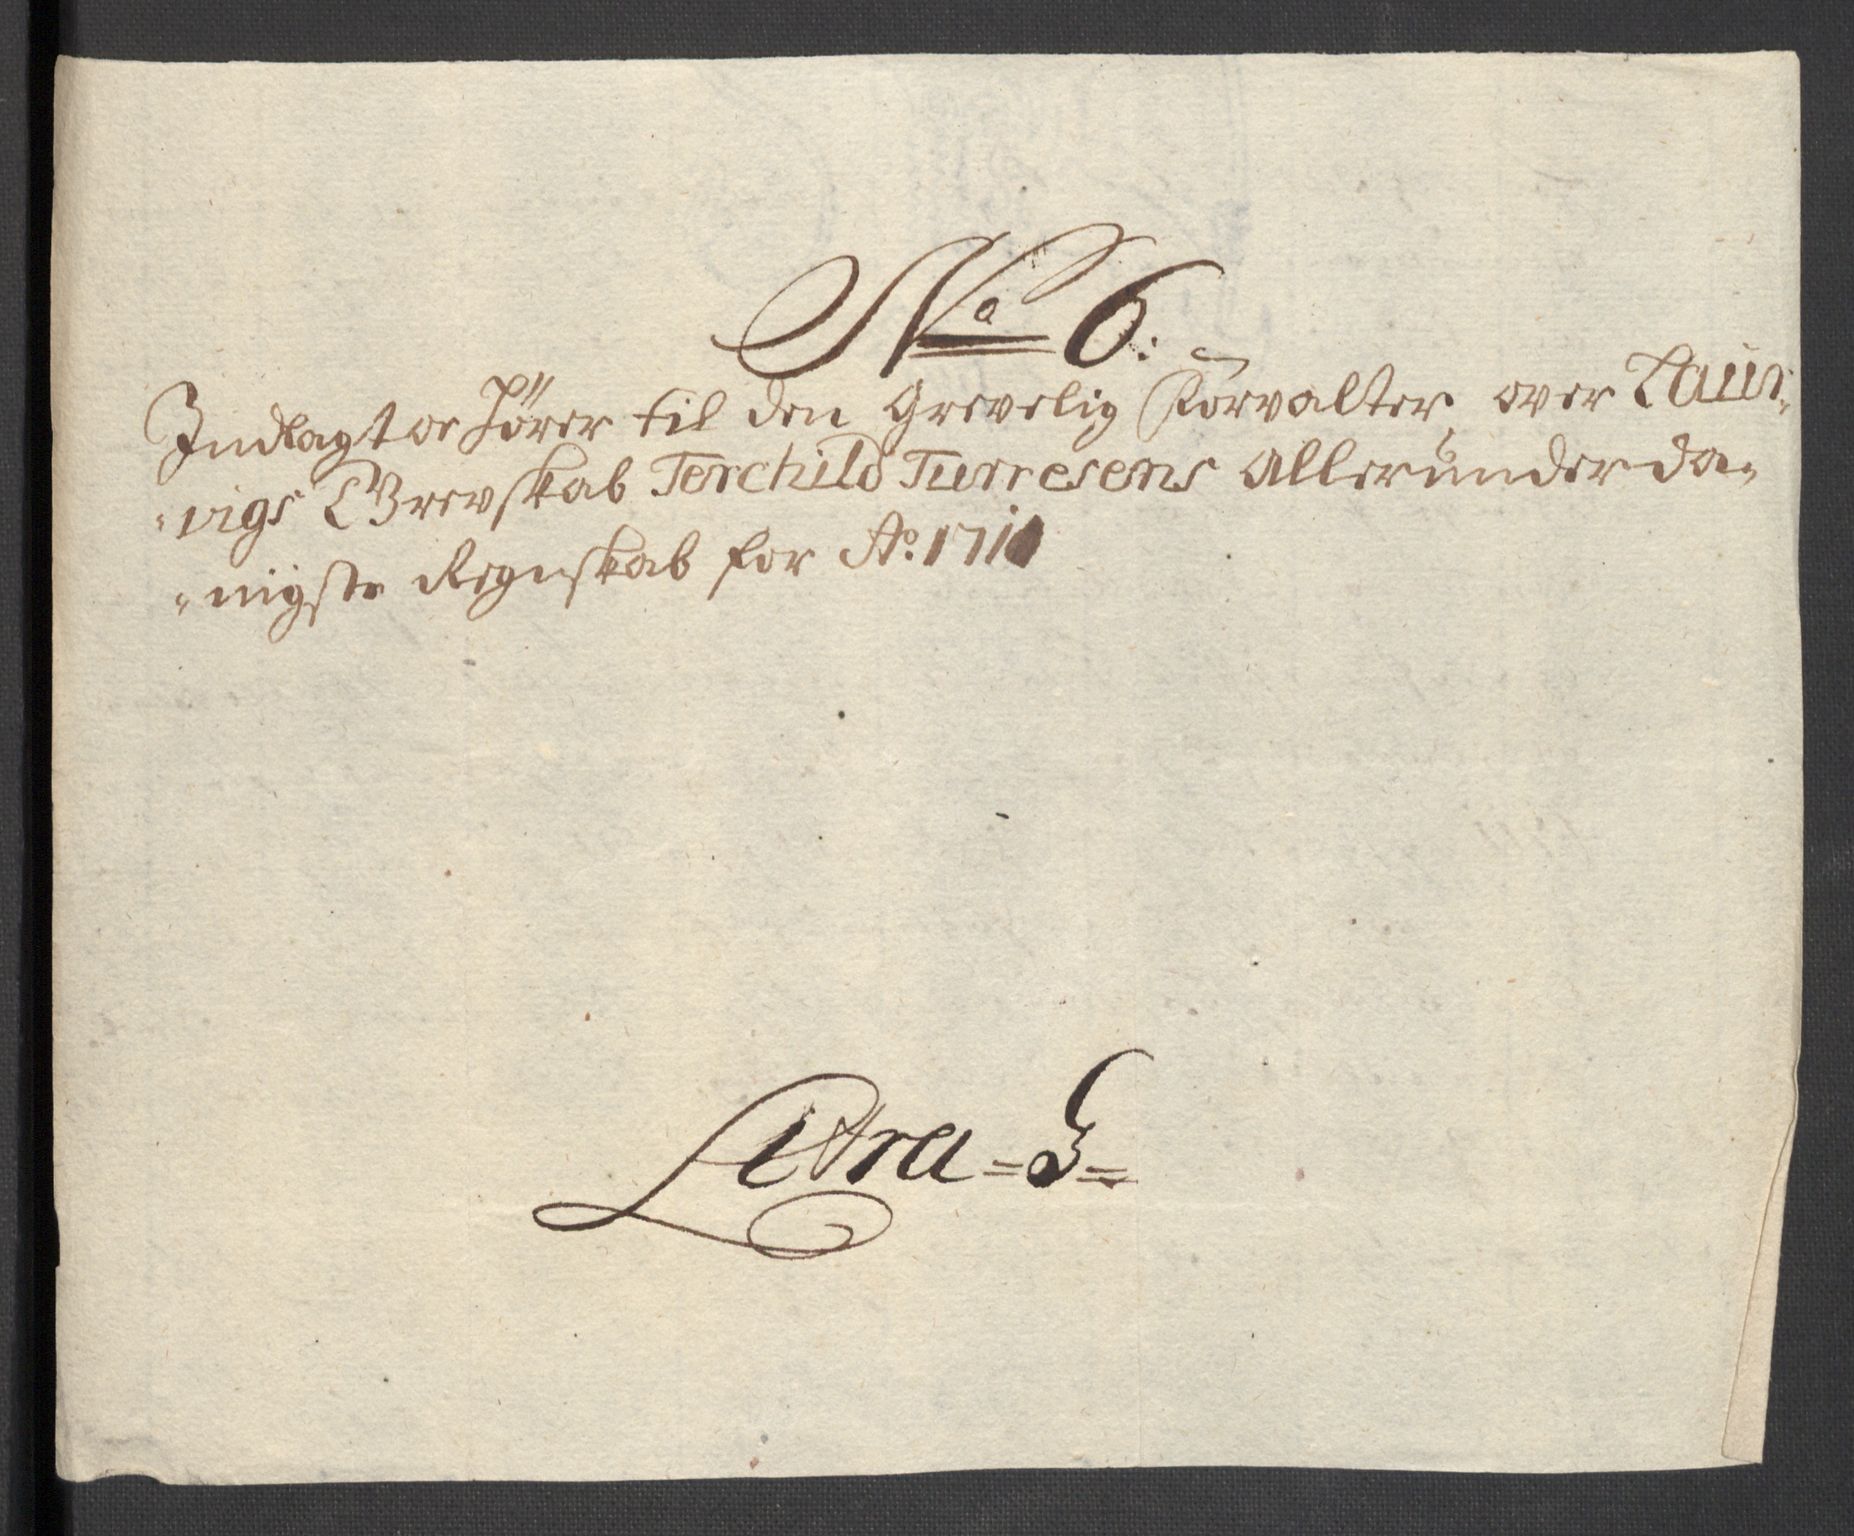 No 6:
Indlagt oc hörer til den Grevelig Forvalter, over Laur-
-vigs Grevskab Terchild Turresens Allerunderda-
-nigste Regnskab for Ao. 1710
Litra = G =